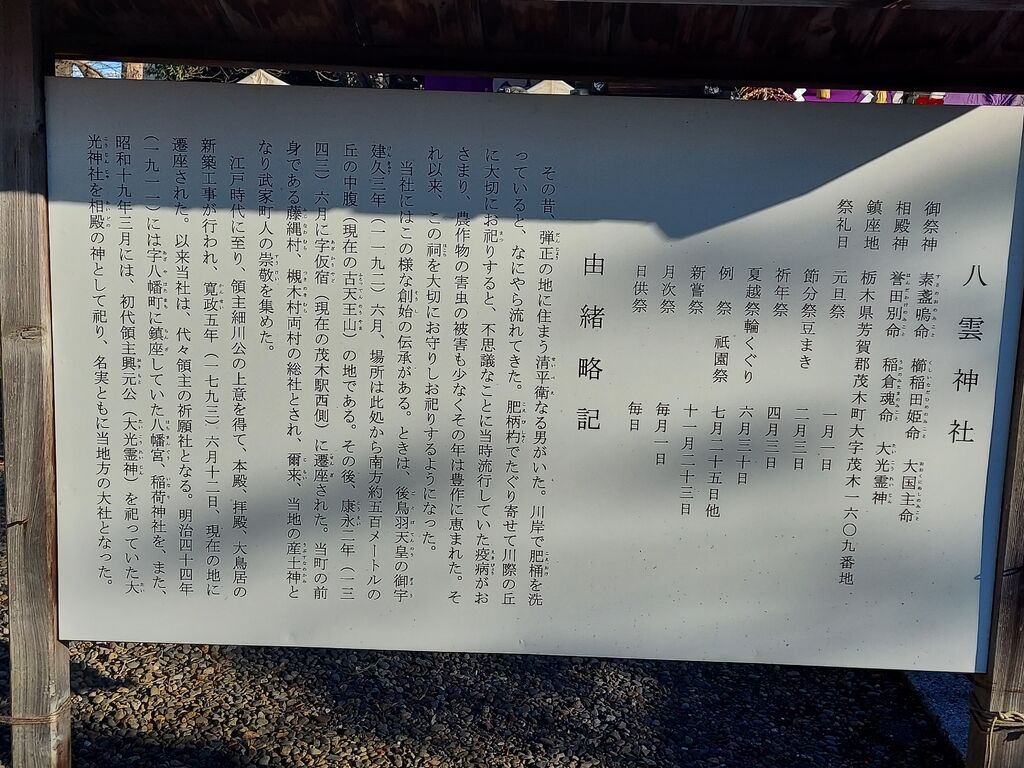 八雲神社
御祭神 素盞嗚命 櫛稲田姫命 大国主命
相殿神 誉田別命 稲倉魂命 大光霊神
鎮座地 栃木県芳賀郡茂木町大字茂木一六〇九番地
祭礼日 元旦祭 一月一日
節分祭豆まき 二月三日
祈年祭 四月三日
夏越祭輪くぐり 六月三十日
例祭 祇園祭 七月二十五日他
新嘗祭 十一月二十三日
月次祭 毎月一日
日供祭 毎日
由緒略記
その昔、弾正の地に住まう清平衛なる男がいた。川岸で肥桶を洗
っていると、なにやら流れてきた。肥柄杓でたぐり寄せて川際の丘
に大切にお祀りすると、不思議なことに当時流行していた疫病がお
さまり、農作物の害虫の被害も少なくその年は豊作に恵まれた。そ
れ以来、この祠を大切にお守りしお祀りするようになった。
当社にはこの様な創始の伝承がある。ときは、後鳥羽天皇の御宇
建久三年（一一九二）六月、場所は此処から南方約五百メートルの
丘の中腹（現在の古天王山）の地である。その後、康永二年（一三
四三）六月に字仮宿（現在の茂木駅西側）に遷座された。当町の前
身である藤縄村、槻木村両村の総社とされ、爾来、当地の産土神と
なり武家町人の崇敬を集めた。
江戸時代に至り、領主細川公の上意を得て、本殿、拝殿、大鳥居の
新築工事が行われ、寛政五年（一七九三）六月十二日、現在の地に
遷座された。以来当社は、代々領主の祈願社となる。明治四十四年
（一九一一）には字八幡町に鎮座していた八幡宮、稲荷神社を、また、
昭和十九年三月には、初代領主興元公（大光霊神）を祀っていた大
光神社を相殿の神として祀り、名実ともに当地方の大社となった。